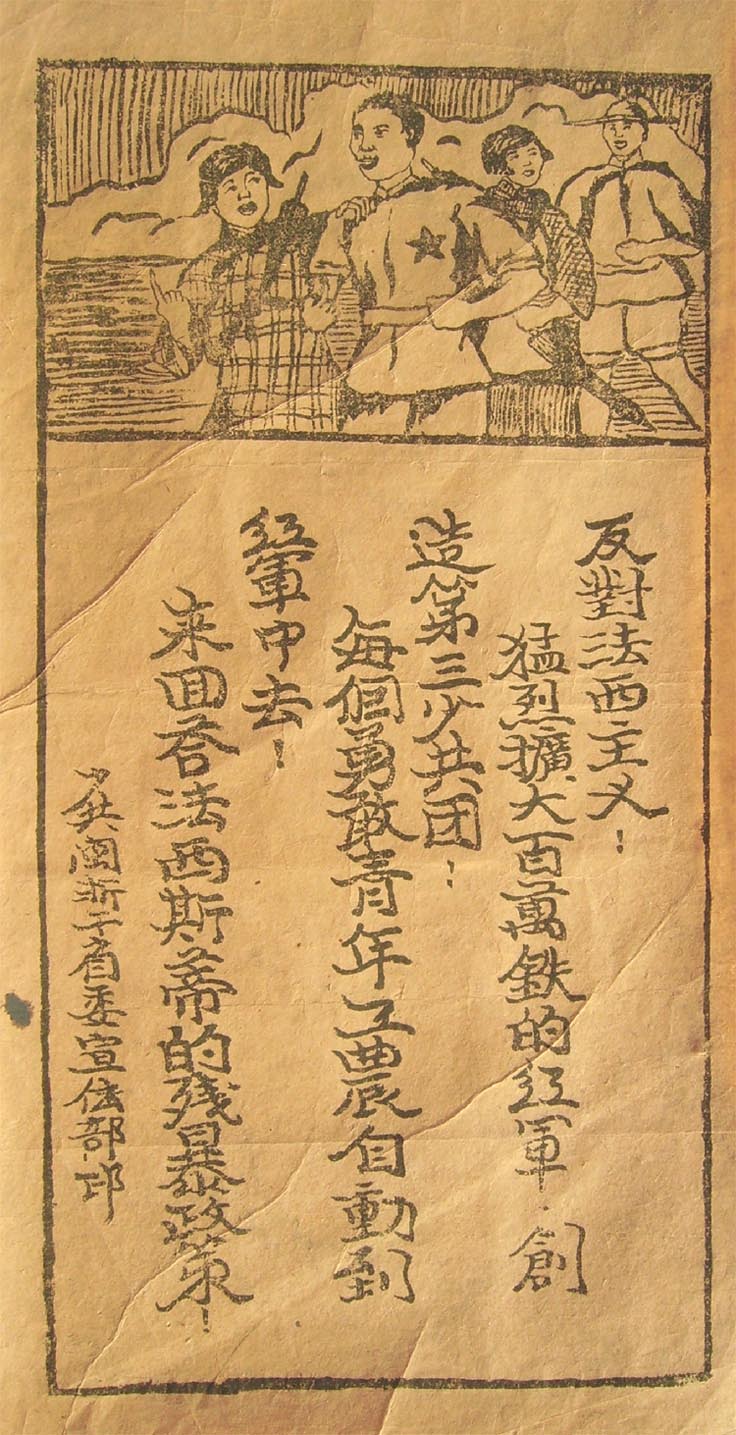 反對法西主义！
猛烈擴大百萬鉄的红軍．創
造第三少共团！
每個勇敢青年工農自動到
红軍中去！
来回荅法西斯蒂的残暴政策！
少共闽浙干省委宣伝部印